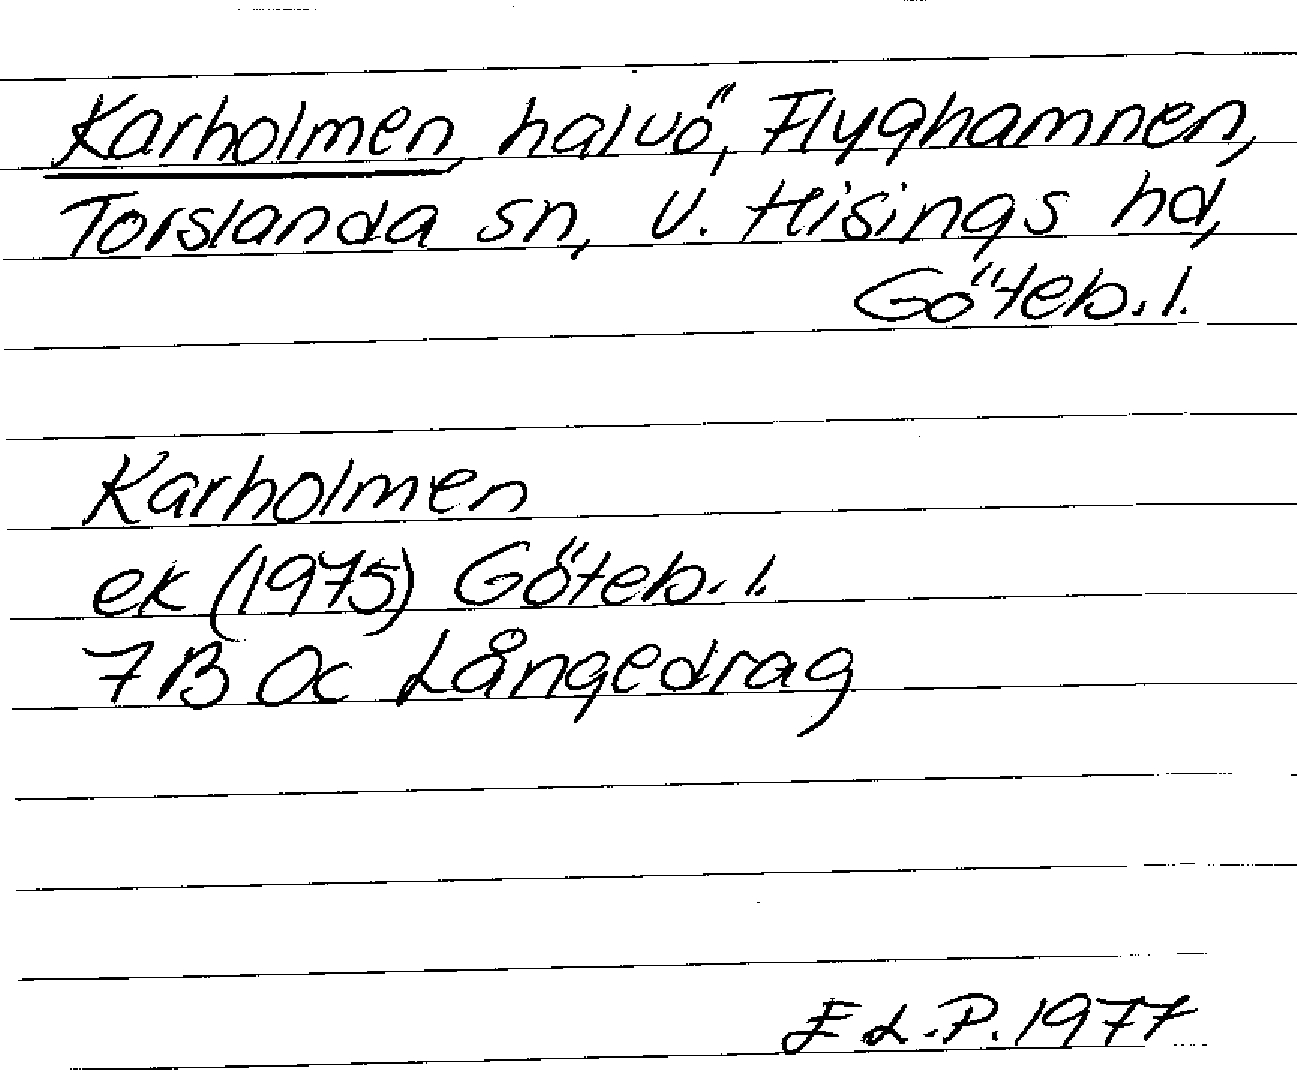 Karholmen, halvö, Flyghamnen,
Torslanda sn, V. Hisings hd,
Göteb. l.
Karholmen
ek (1975) Göteb. l.
7B Oc Långedrag
E L.P. 1977